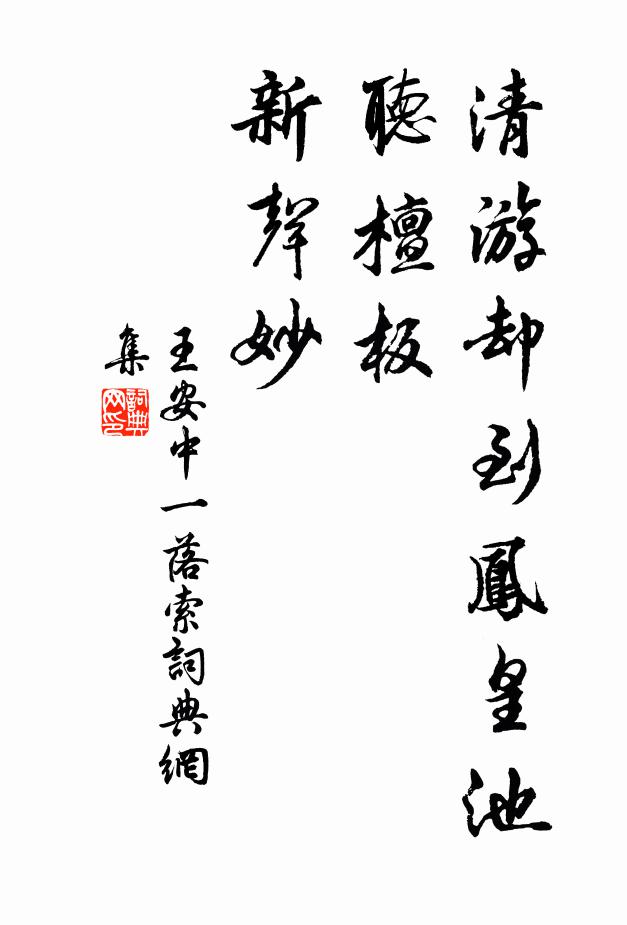 清游却到鳳皇池
聽檀板
新聲妙
王安中一落索詞典網
集
詞典
网印